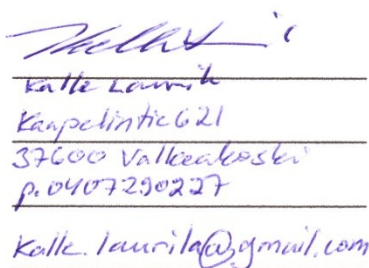 Kalle Laurila
Kaapelintie 621
37600 Valkeakoski
p. 0407290227
Kalle.laurila@gmail.com